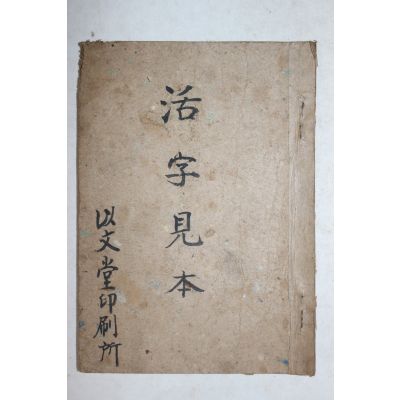 活字見本
以文堂印刷所